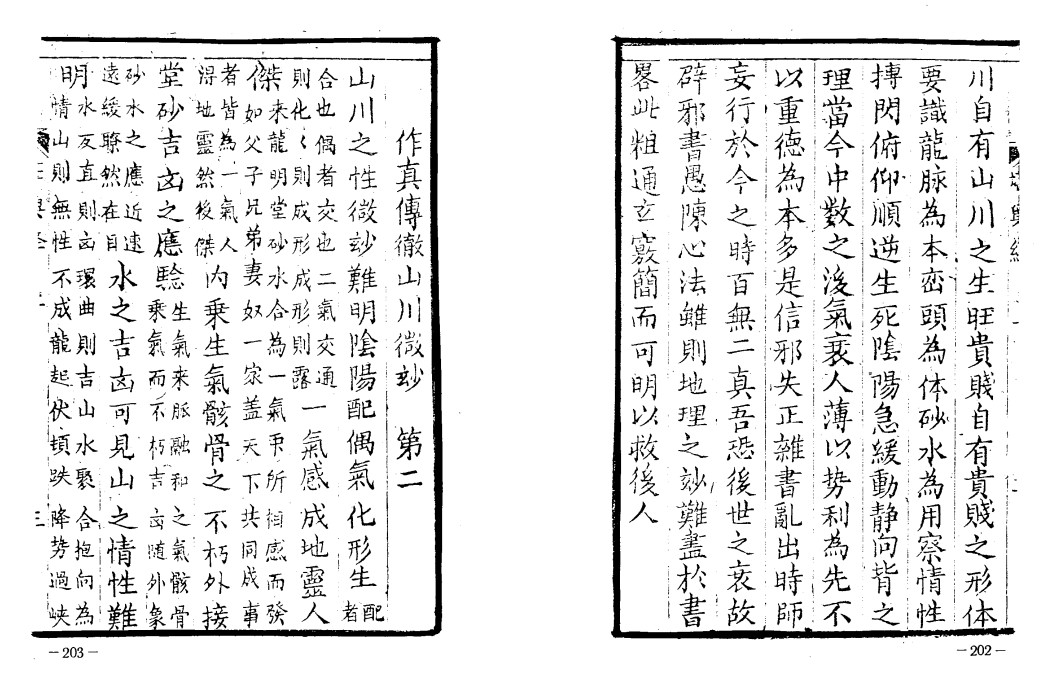 川自有山川之生旺貴賤自有貴賤之形体
要識龍脉為本峦頭為体砂水為用察情性
摶閃俯仰順逆生死陰陽急緩動静向背之
理當今中数之後氣衰人薄以势利為先不
以重德為本多是信邪失正雜書亂出時師
妄行於今之時百無二真吾恐後世之衰故
辟邪書愚陳心法雖則地理之妙難盡於書
畧此粗通玄竅簡而可明以救後人
－202－
作真傳徹山川微玅 第二
山川之性微玅難明陰陽配偶氣化形生配者
合也偶者交也二氣交通則化〻則成形成形則露一氣感成地靈人
傑來龍明堂砂水合為一氣所相感而發如父子兄弟妻奴一家盖天下共同成事
者皆為一氣人得地靈然後傑内乗生氣骸骨之不朽外接
堂砂吉凶之應驗生氣來脉融和之氣骸骨乗氣而不朽吉凶随外象
砂水之應近速遠緩瞭然在目水之吉凶可見山之情性難
明水反直則凶環曲則吉山水聚合抱向為情山則無性不成龍起伏頓跌降势過峡
－203－